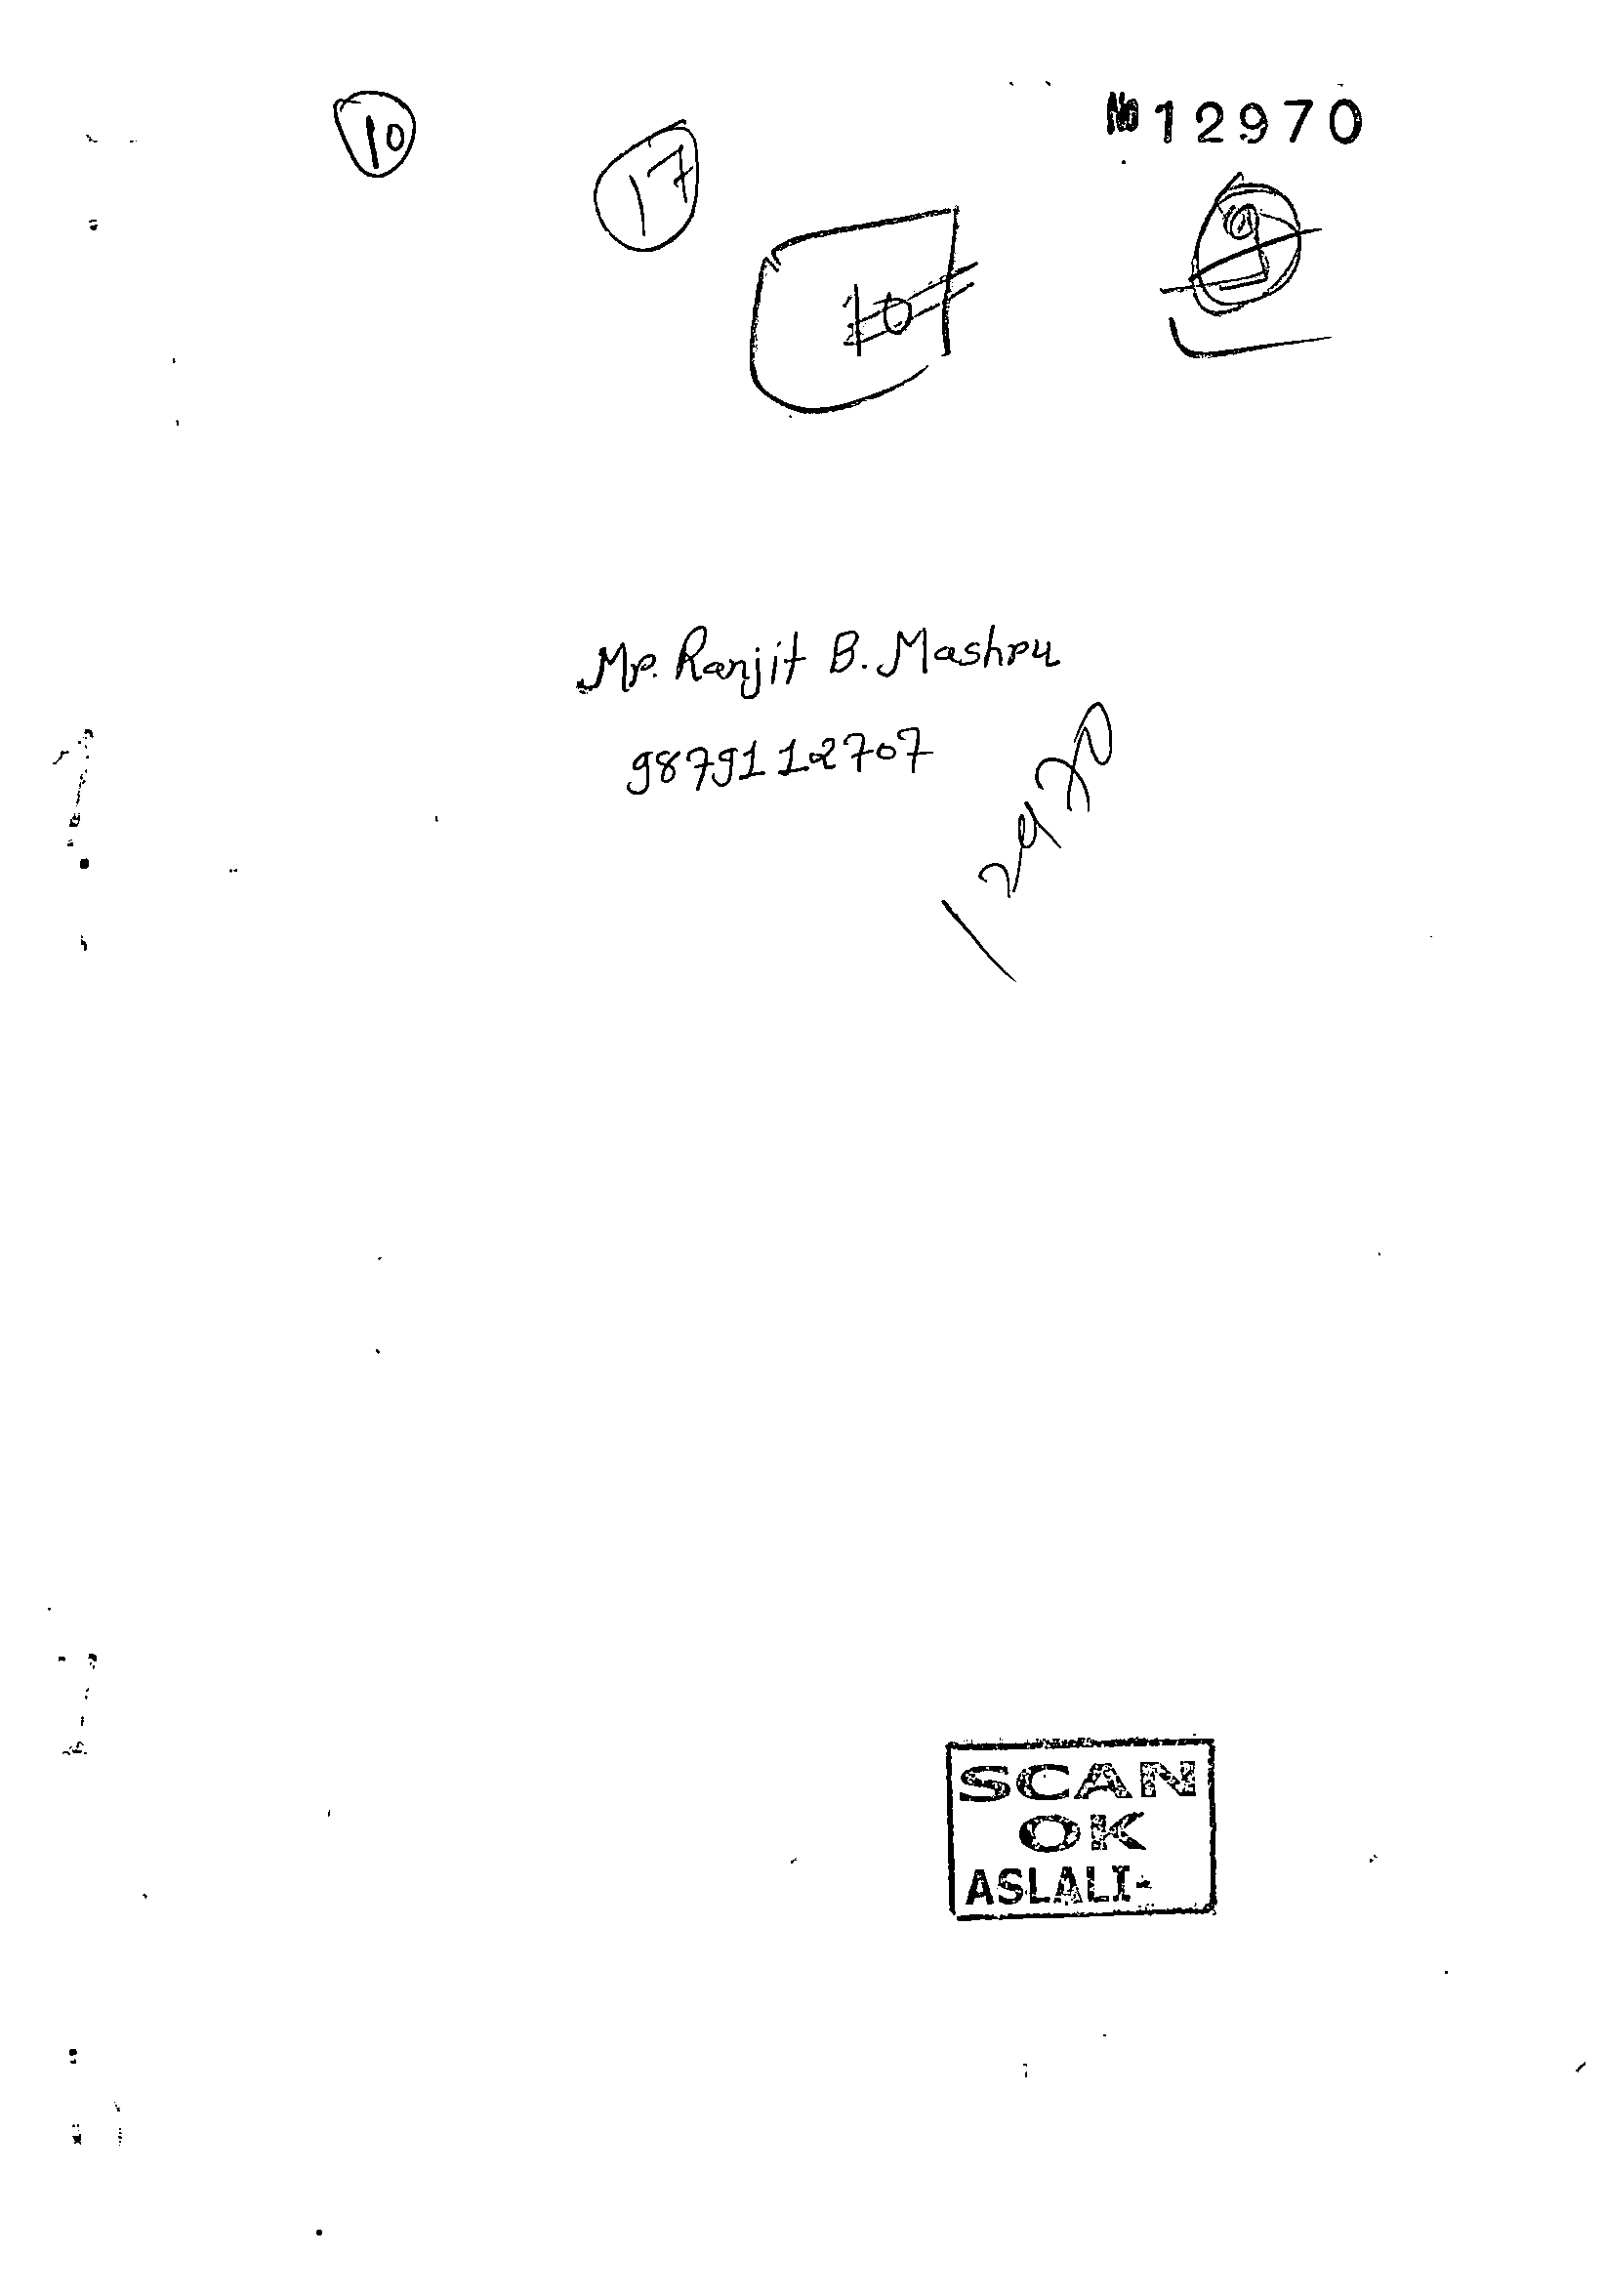 No 12970
10
17
10
Mr. Ranjit B. Mashru
9879112707
12970
SCAN
OK
ASLALI-